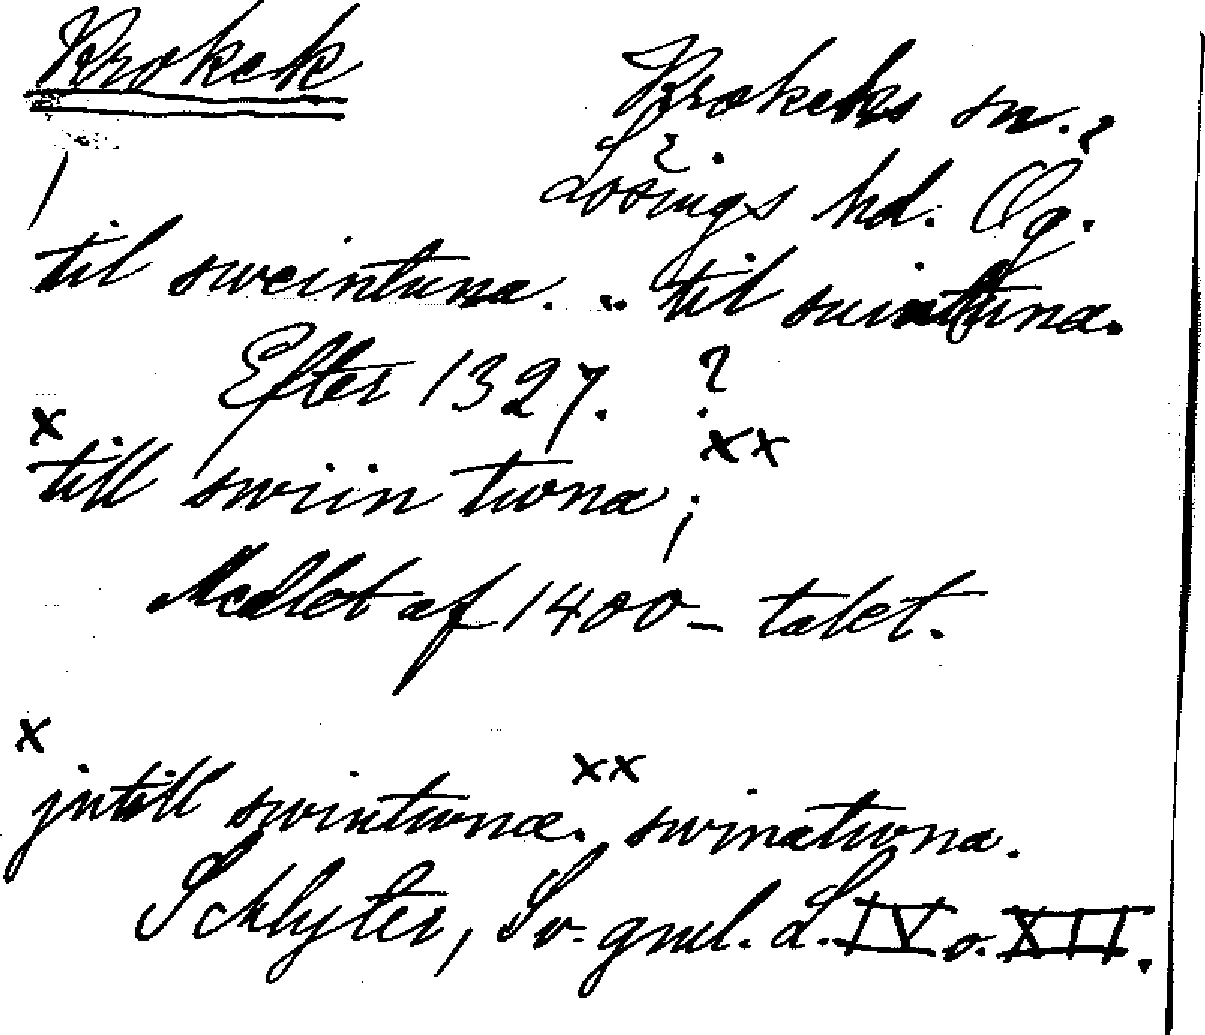 Krokek
Krokeks sn. ?
Lösings hd. Ög.
til sweintuna. .. til suintuna.
Efter 1327. ?
x till swiin twna xx ;
Medlet af 1400-talet.
x jntill swintwna. xx swinatwna.
Schlyter, Sv. gml. L. IV o. XII.